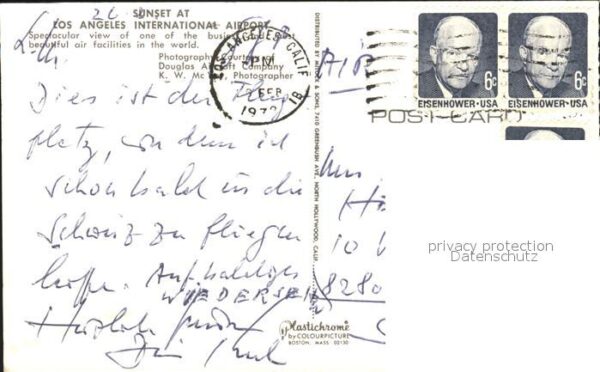 SUNSET AT
LOS ANGELES INTERNATIONAL AIRPORT
Spectacular view of one of the busiest and most
beautiful air facilities in the world.
Photograph courtesy of
Douglas Aircraft Company
K. W. Photographer
Dies ist der Flug
platz, von dem ich
schon bald in die
Schweiz zu fliegen
hoffe. Auf baldiges
WIEDERSEHN
Herzlich
LOS ANGELES, CALIF
PM
FEB
197
6c
EISENHOWER·USA
6c
EISENHOWER·USA
POST-CARD
AIR
10
8280
DISTRIBUTED BY & SONS, 7410 GREENBUSH AVE., NORTH HOLLYWOOD, CALIF.
Plastichrome
by COLOURPICTURE
BOSTON, MASS 02130
privacy protection
Datenschutz